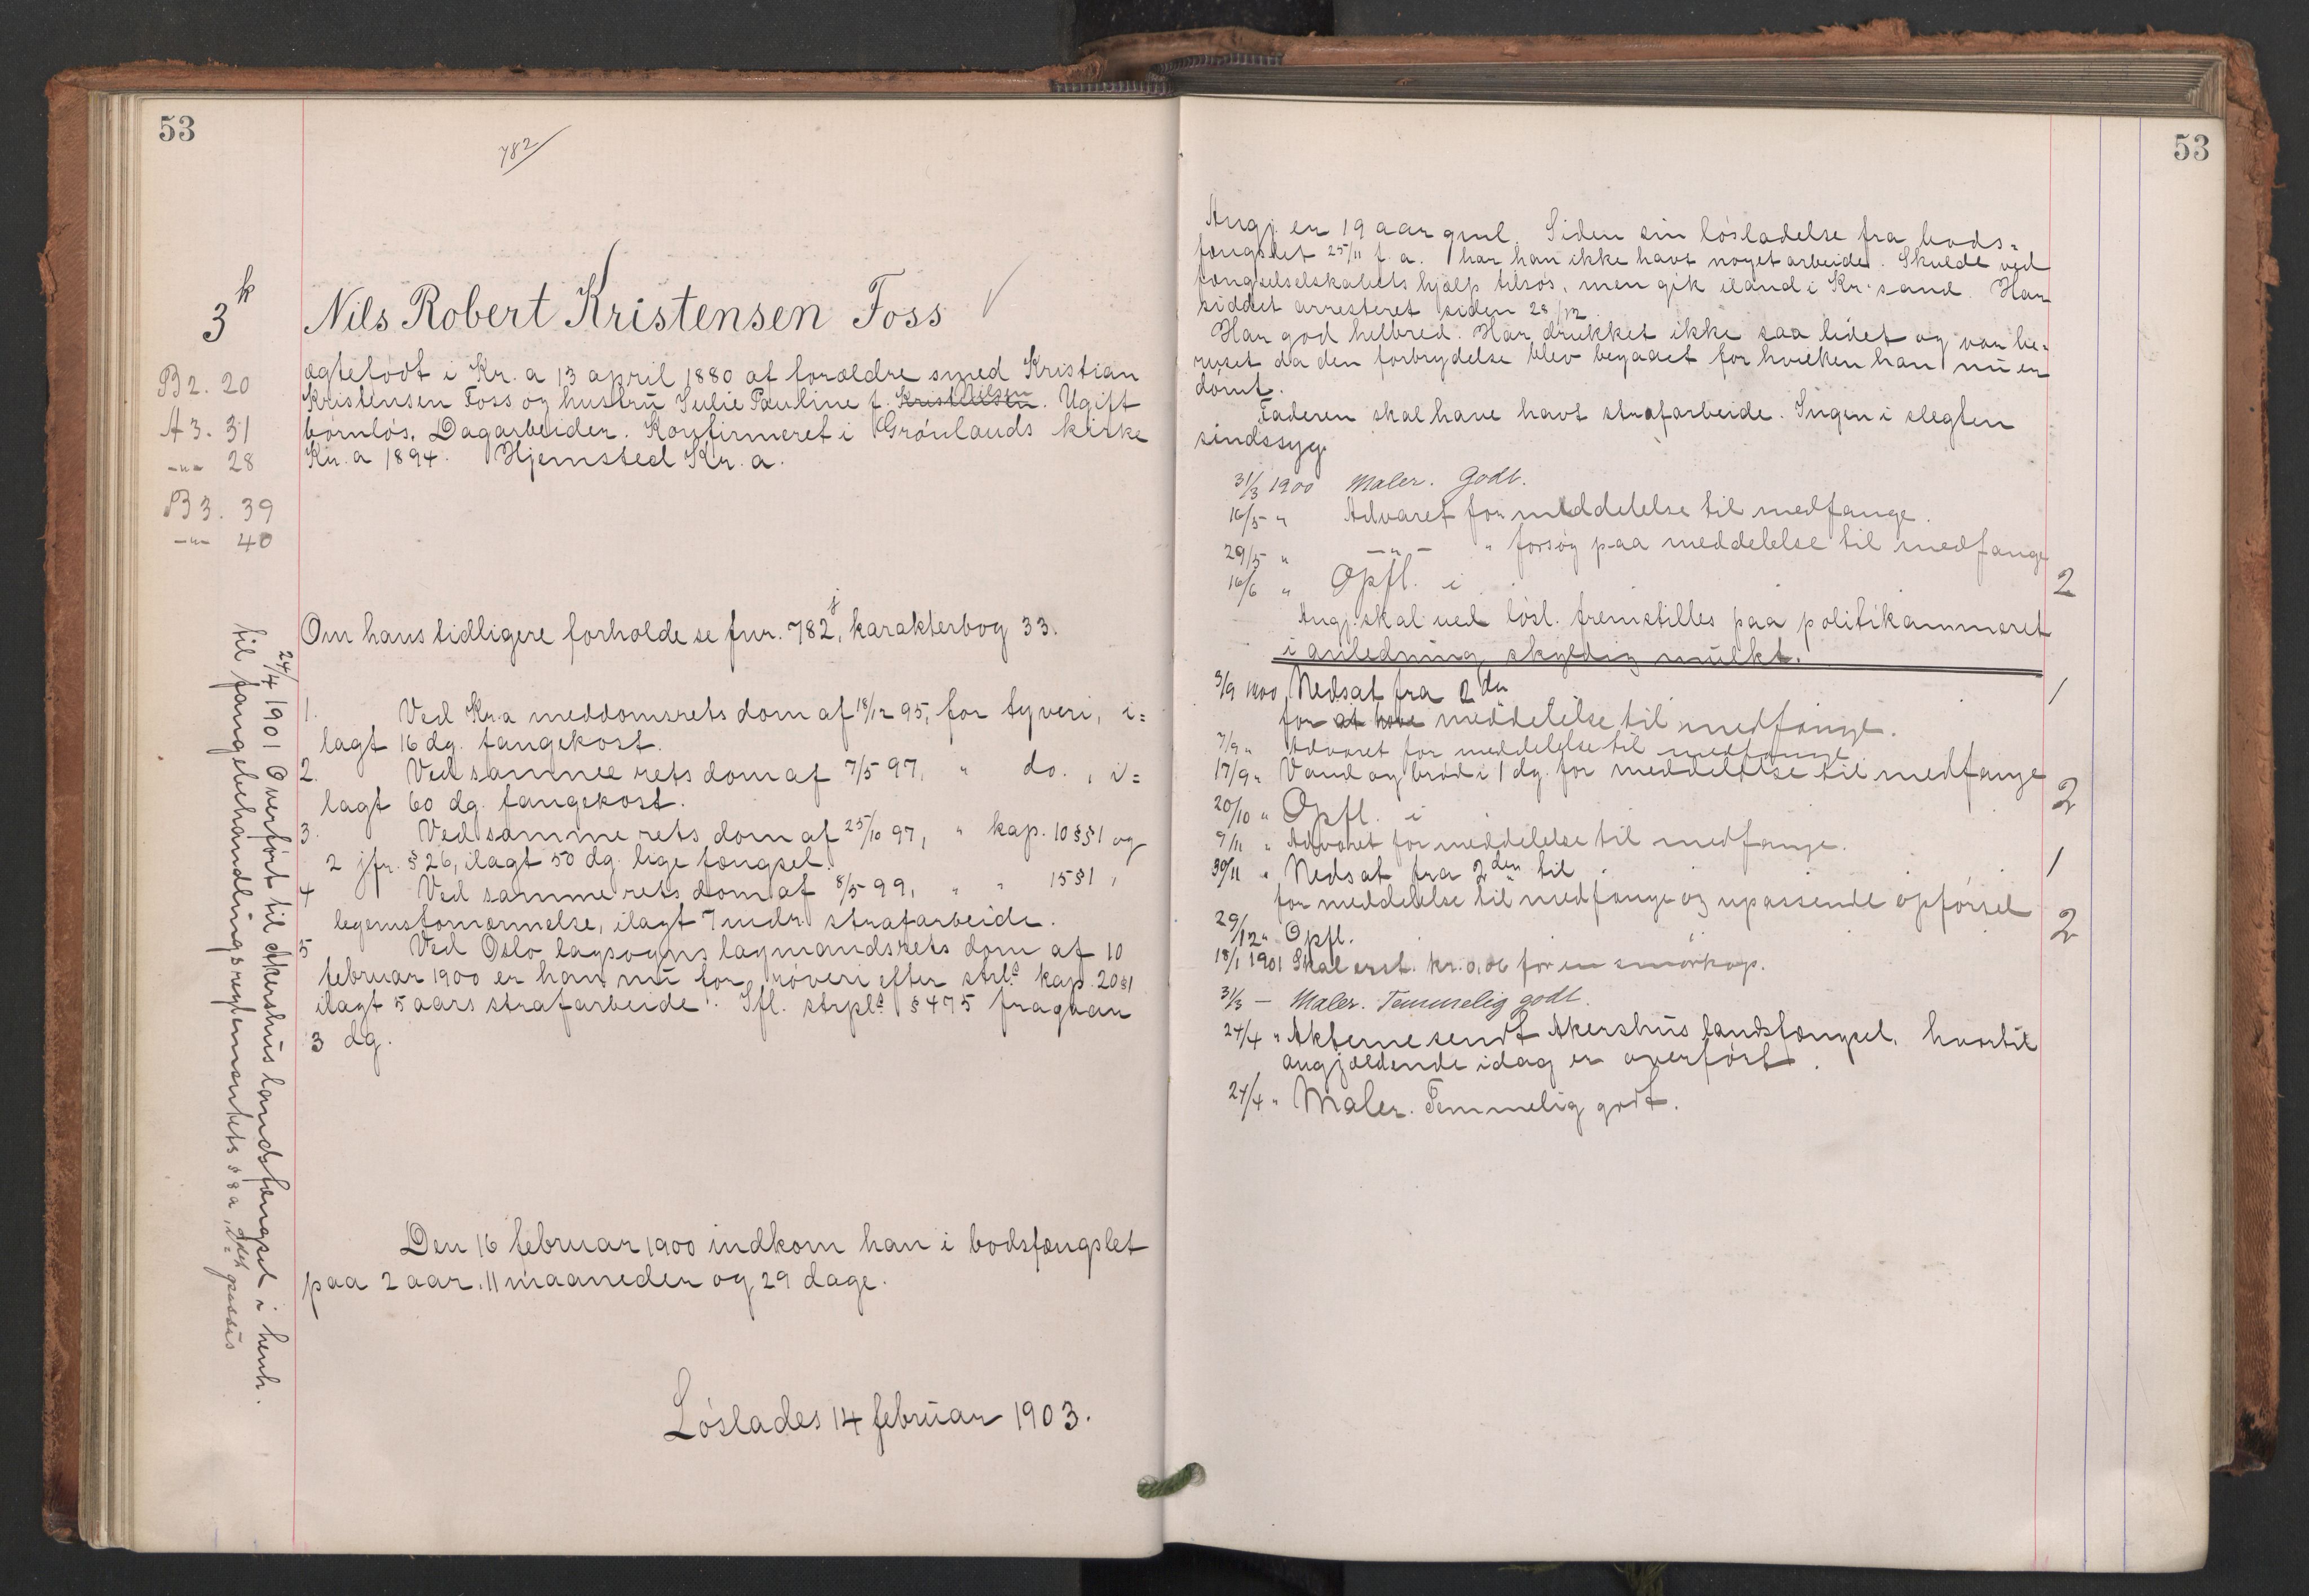 53
782
3k
B2. 20
A3. 31
-"- 28
B3. 39
-"- 40
Nils Robert Kristensen Foss
ægtefødt i Kr.a 13 april 1880 af forældre smed Kristian
Kristensen Foss og hustru Julie Pauline f. Nilsen. Ugift
børnløs. Dagarbeider. Konfirmeret i Grønlands kirke
Kr.a 1894. Hjemsted Kr.a.
Om hans tidligere forholde se fnr. 782j, karakterbog 33.
1. Ved Kr.a meddomsrets dom af 18/12 95, for tyveri, i=
lagt 16 dg. fangekost.
2. Ved samme rets dom af 7/5 97, " do. , i=
lagt 60 dg. fangekost.
3. Ved samme rets dom af 25/10 97, " kap. 10 §§1 og
2 jfr. § 26, ilagt 50 dg. lige fængsel.
4 Ved samme rets dom af 8/5 99, " " 15 §1,
legemsfornærmelse, ilagt 7 mdr. strafarbeide.
5 Ved Oslo lagsogns lagmandsrets dom af 10
februar 1900 er han nu for røveri efter strl. kap. 20 §1
ilagt 5 aars strafarbeide. Ifl. strpl. § 475 fragaar
3 dg.
Den 16 februar 1900 indkom han i bodsfængslet
paa 2 aar, 11 maaneder og 29 dage.
Løslades 14 februar 1903.
24/4 1901 Overført til Akershus landsfængsel i henh.
til fangebehandlingsreglementets § 8 a, passus
53
Angj. er 19 aar gml. Siden sin løsladelse fra bods=
fængslet 25/11 f. a. har han ikke havt noget arbeide. Skulde ved
fængselselskabets hjælp tilsøs, men gik iland i Kr.sand. Har
siddet arresteret siden 28/12.
Har god helbred. Har drukket ikke saa lidet og var be=
ruset da den forbrydelse blev begaaet for hvilken han nu er
dømt.
Faderen skal have havt strafarbeide. Ingen i slegten
sindssyg.
31/3 1900 Maler. Godt.
16/5 " Advaret for meddelelse til medfange.
29/5 " -"- " forsøg paa meddelelse til medfange
16/6 " Opfl. i 2
Angj. skal ved løsl. fremstilles paa politikammeret
i anledning skyldig mulkt.
3/9 1900 Nedsat fra 2den 1
for at have meddelelse til medfange.
7/9 " Advaret for meddelelse til medfange
17/9 " Vand og brød i 1 dg. for meddelelse til medfange
20/10 " Opfl. i 2
9/11 " Advaret for meddelelse til medfange.
30/11 " Nedsat fra 2den til 1
for meddelelse til medfange og upassende opførsel
29/12 " Opfl. 2
18/1 1901 Skal erst. kr. 0,06 for en smørkop.
31/3 – Maler. Temmelig godt.
24/4 " Akterne sendt Akershus landsfængsel, hvortil
angjældende idag er overført.
24/4 " Maler. Temmelig godt.